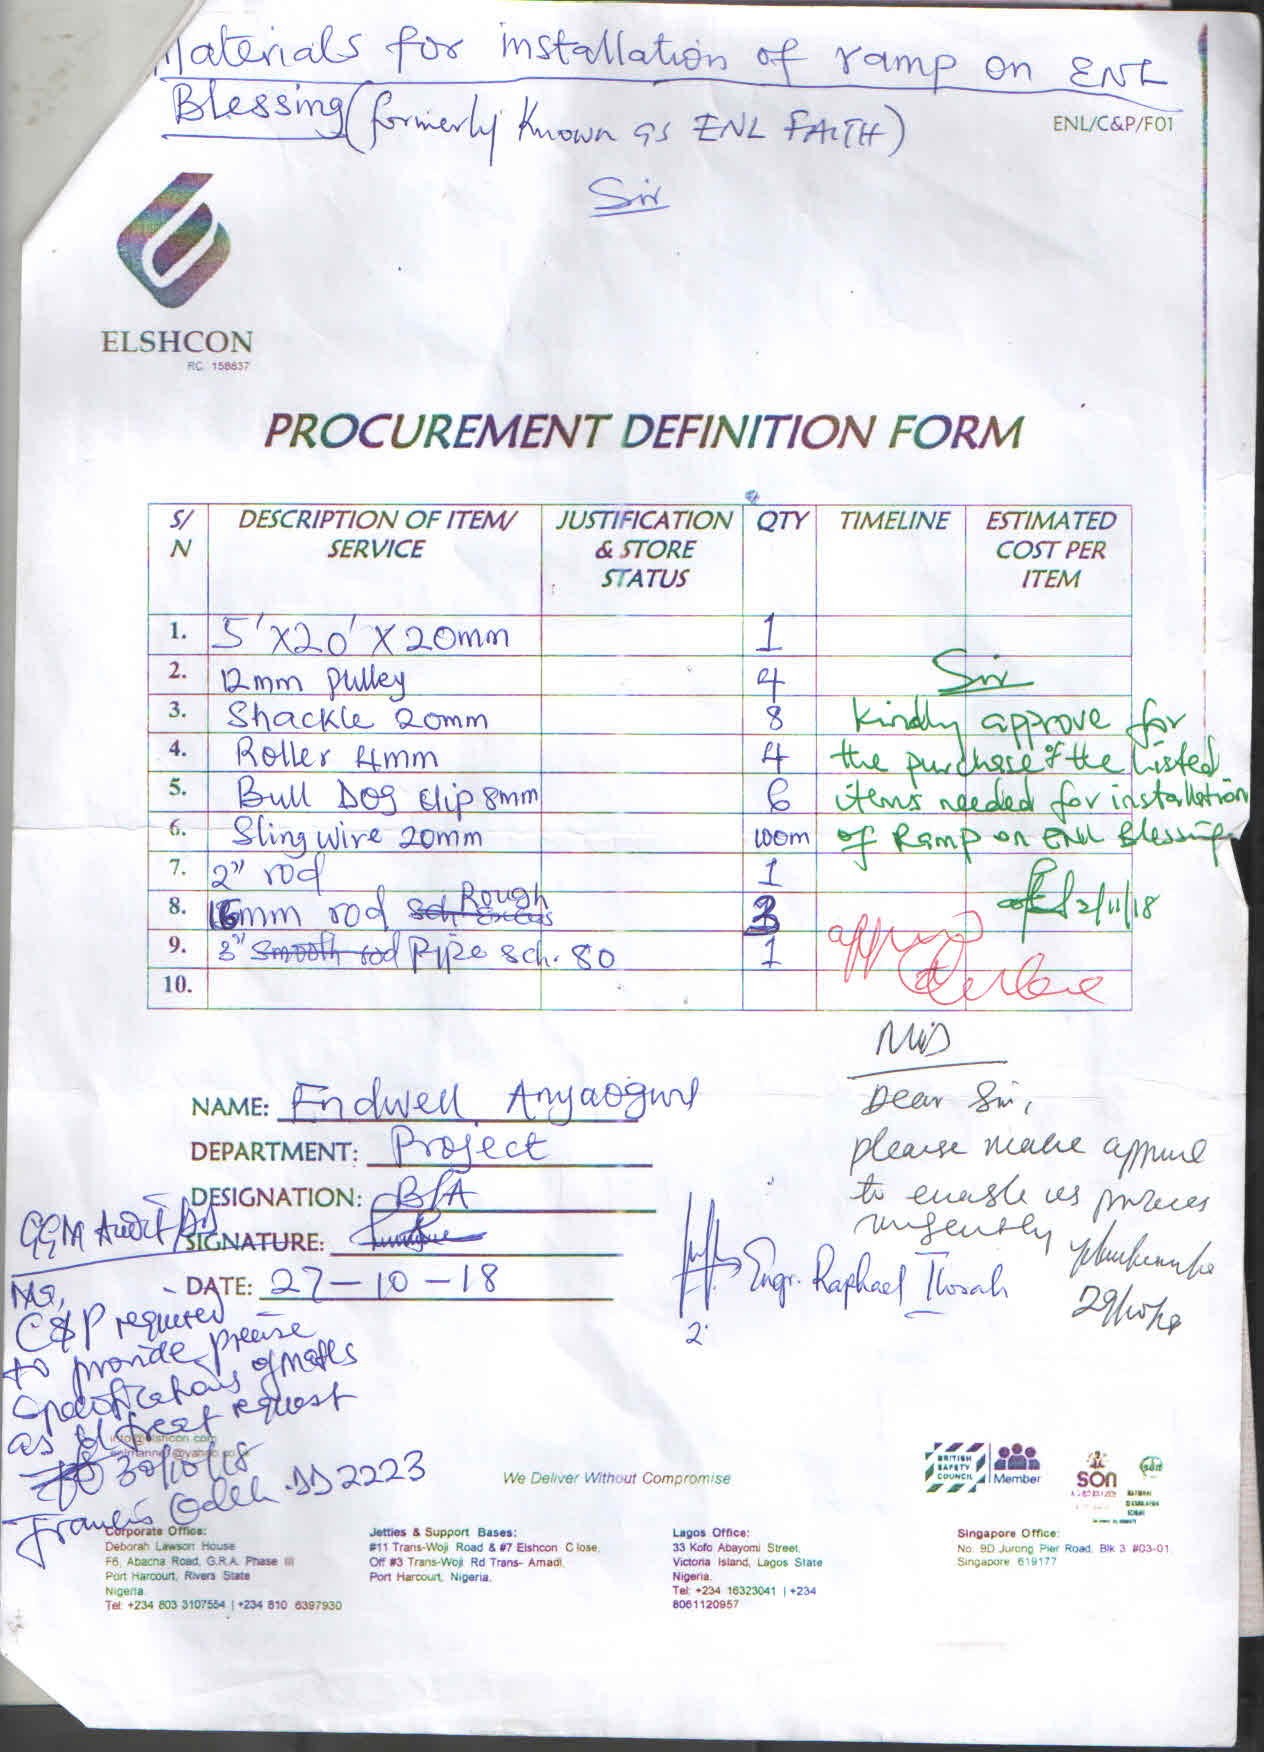 Materials for installation of ramp on ENL
Blessing (formerly known as ENL FAITH)
ENL/C&P/F01
Sir
ELSHCON
RC 158637
PROCUREMENT DEFINITION FORM
S/N DESCRIPTION OF ITEM/ SERVICE JUSTIFICATION & STORE STATUS QTY TIMELINE ESTIMATED COST PER ITEM
1. 5'X20'X20mm 1
2. 12mm pulley 4
3. Shackle 20mm 8
4. Roller 4mm 4
5. Bull Dog clip 8mm 6
6. Sling wire 20mm 100m
7. 2" rod 1
8. 16mm rod Rough 3
9. 3" smooth rod Pipe sch. 80 1
10.
Sir
Kindly approve for
the purchase of the listed
items needed for installation
of Ramp on ENL Blessing
2/11/18
approved
MD
Dear Sir,
please make approval
to enable us process
urgently
29/10/18
NAME: Endwell Anyaogwu
DEPARTMENT: Project
DESIGNATION: B/A
SIGNATURE:
DATE: 27-10-18
Engr. Raphael
GGM Audit
C&P required
to provide precise
specifications of matls
as
request
30/10/18
Francis Odeh
2223
info@elshcon.com
We Deliver Without Compromise
BRITISH SAFETY COUNCIL Member
SON
Corporate Office:
Deborah Lawson House
F6, Abacha Road, G.R.A. Phase III
Port Harcourt, Rivers State
Nigeria.
Tel: +234 803 3107554 | +234 810 6397930
Jetties & Support Bases:
#11 Trans-Woji Road & #7 Elshcon Close,
Off #3 Trans-Woji Rd Trans- Amadi,
Port Harcourt, Nigeria.
Lagos Office:
33 Kofo Abayomi Street,
Victoria Island, Lagos State
Nigeria.
Tel: +234 16323041 | +234
8061120957
Singapore Office:
No. 9D Jurong Pier Road, Blk 3 #03-01,
Singapore 619177